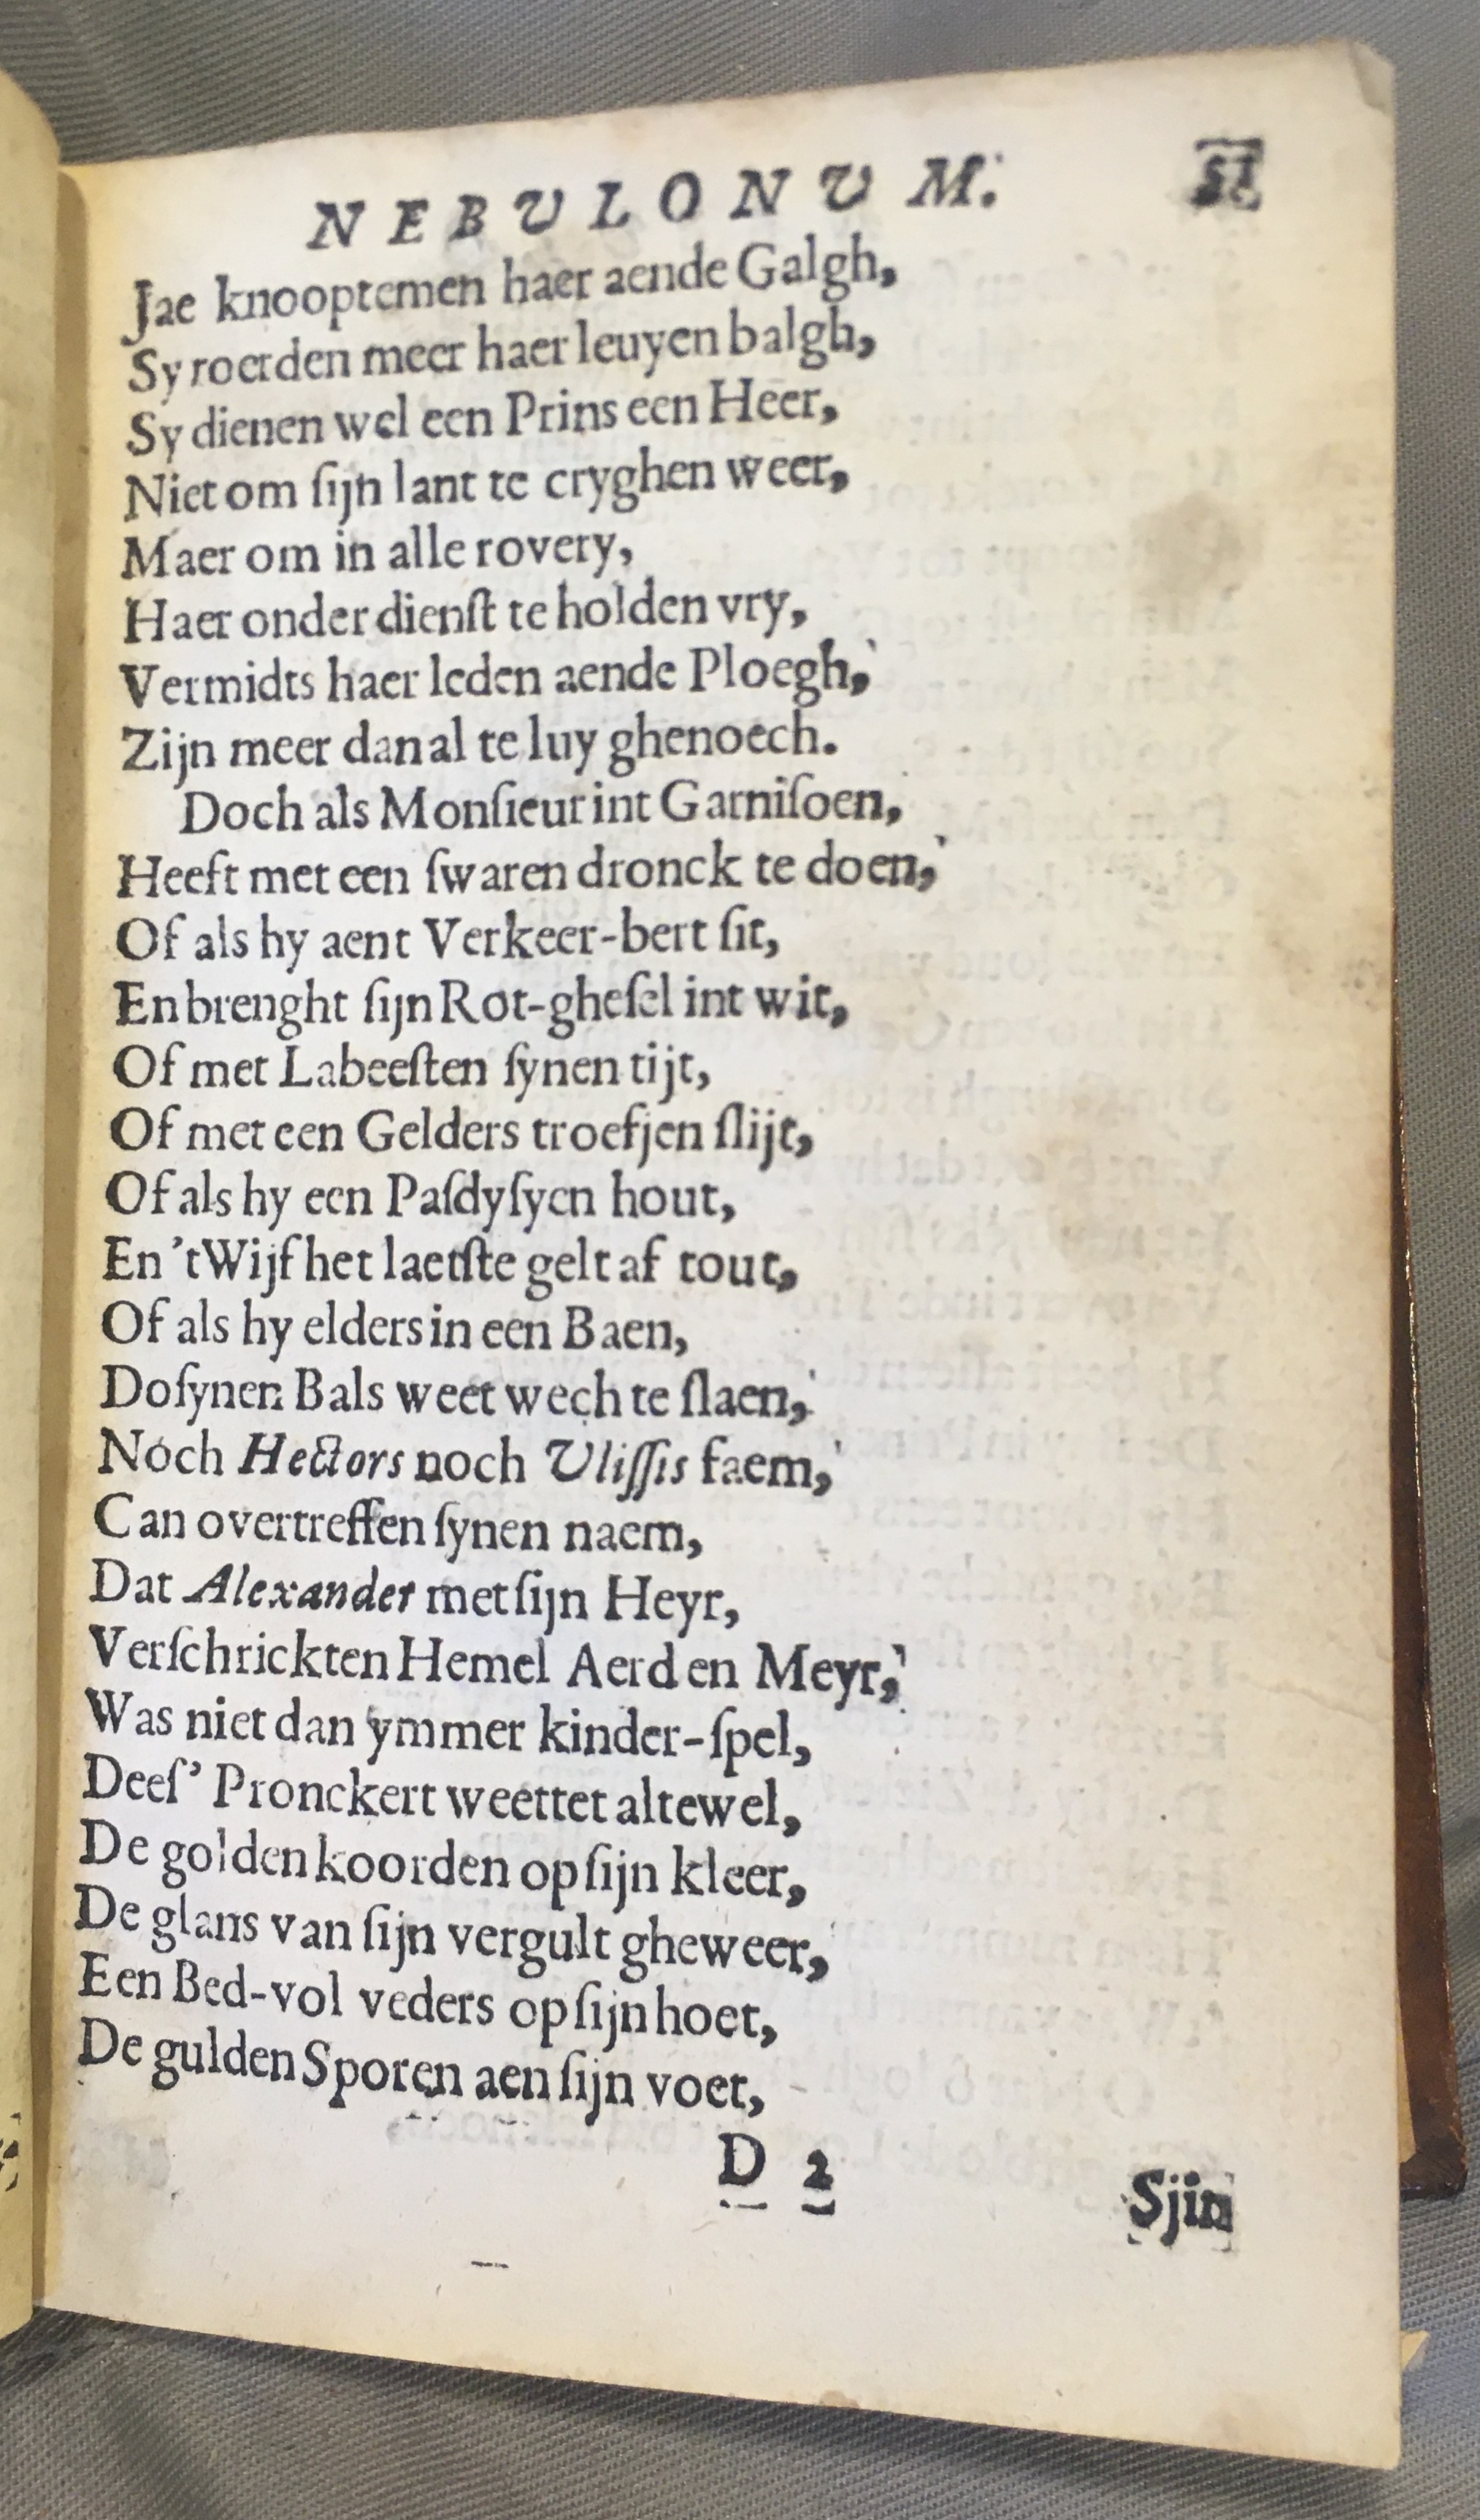 NEBULONUM. 51
Jae knooptemen haer aende Galgh,
Sy roerden meer haer leuyen balgh,
Sy dienen wel een Prins een Heer,
Niet om ſijn lant te cryghen weer,
Maer om in alle rovery,
Haer onder dienſt te holden vry,
Vermidts haer leden aende Ploegh,
Zijn meer dan al te luy ghenoech.
Doch als Monſieur int Garniſoen,
Heeft met een ſwaren dronck te doen,
Of als hy aent Verkeer-bert ſit,
En brenght ſijn Rot-gheſel int wit,
Of met Labeeſten ſynen tijt,
Of met een Gelders troefjen ſlijt,
Of als hy een Paſdyſyen hout,
En 'tWijf het laetſte gelt af tout,
Of als hy elders in een Baen,
Do ſynen Bals weet wech te ſlaen,
Noch Hectors noch Uliſſis faem,
Can overtreffen ſynen naem,
Dat Alexander met ſijn Heyr,
Verſchrickten Hemel Aerd en Meyr,
Was niet dan ymmer kinder-ſpel,
Deeſ' Pronckert weettet altewel,
De golden koorden op ſijn kleer,
De glans van ſijn vergult gheweer,
Een Bed-vol veders op ſijn hoet,
De gulden Sporen aen ſijn voet,
D 2
Sjin